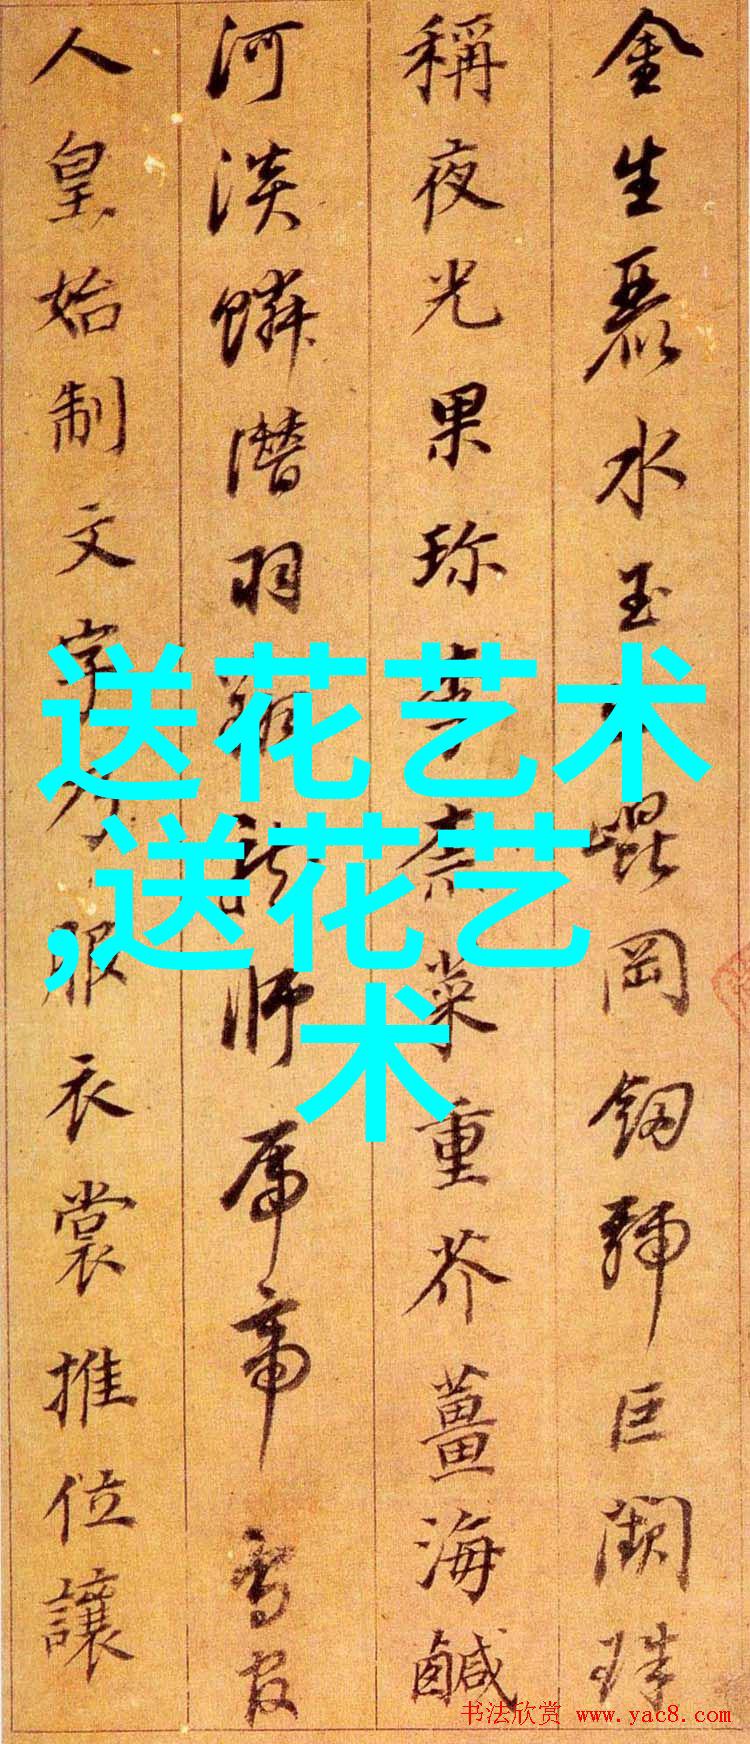 金生麗水玉崑岡劒號巨闕珠
稱夜光果珍李柰菜重芥薑海鹹
河淡鱗潛羽翔龍師帝鳥官
人皇始制文字乃服衣裳推位讓
送花艺术
,送花艺
术
书法欣赏 www.yac8.com